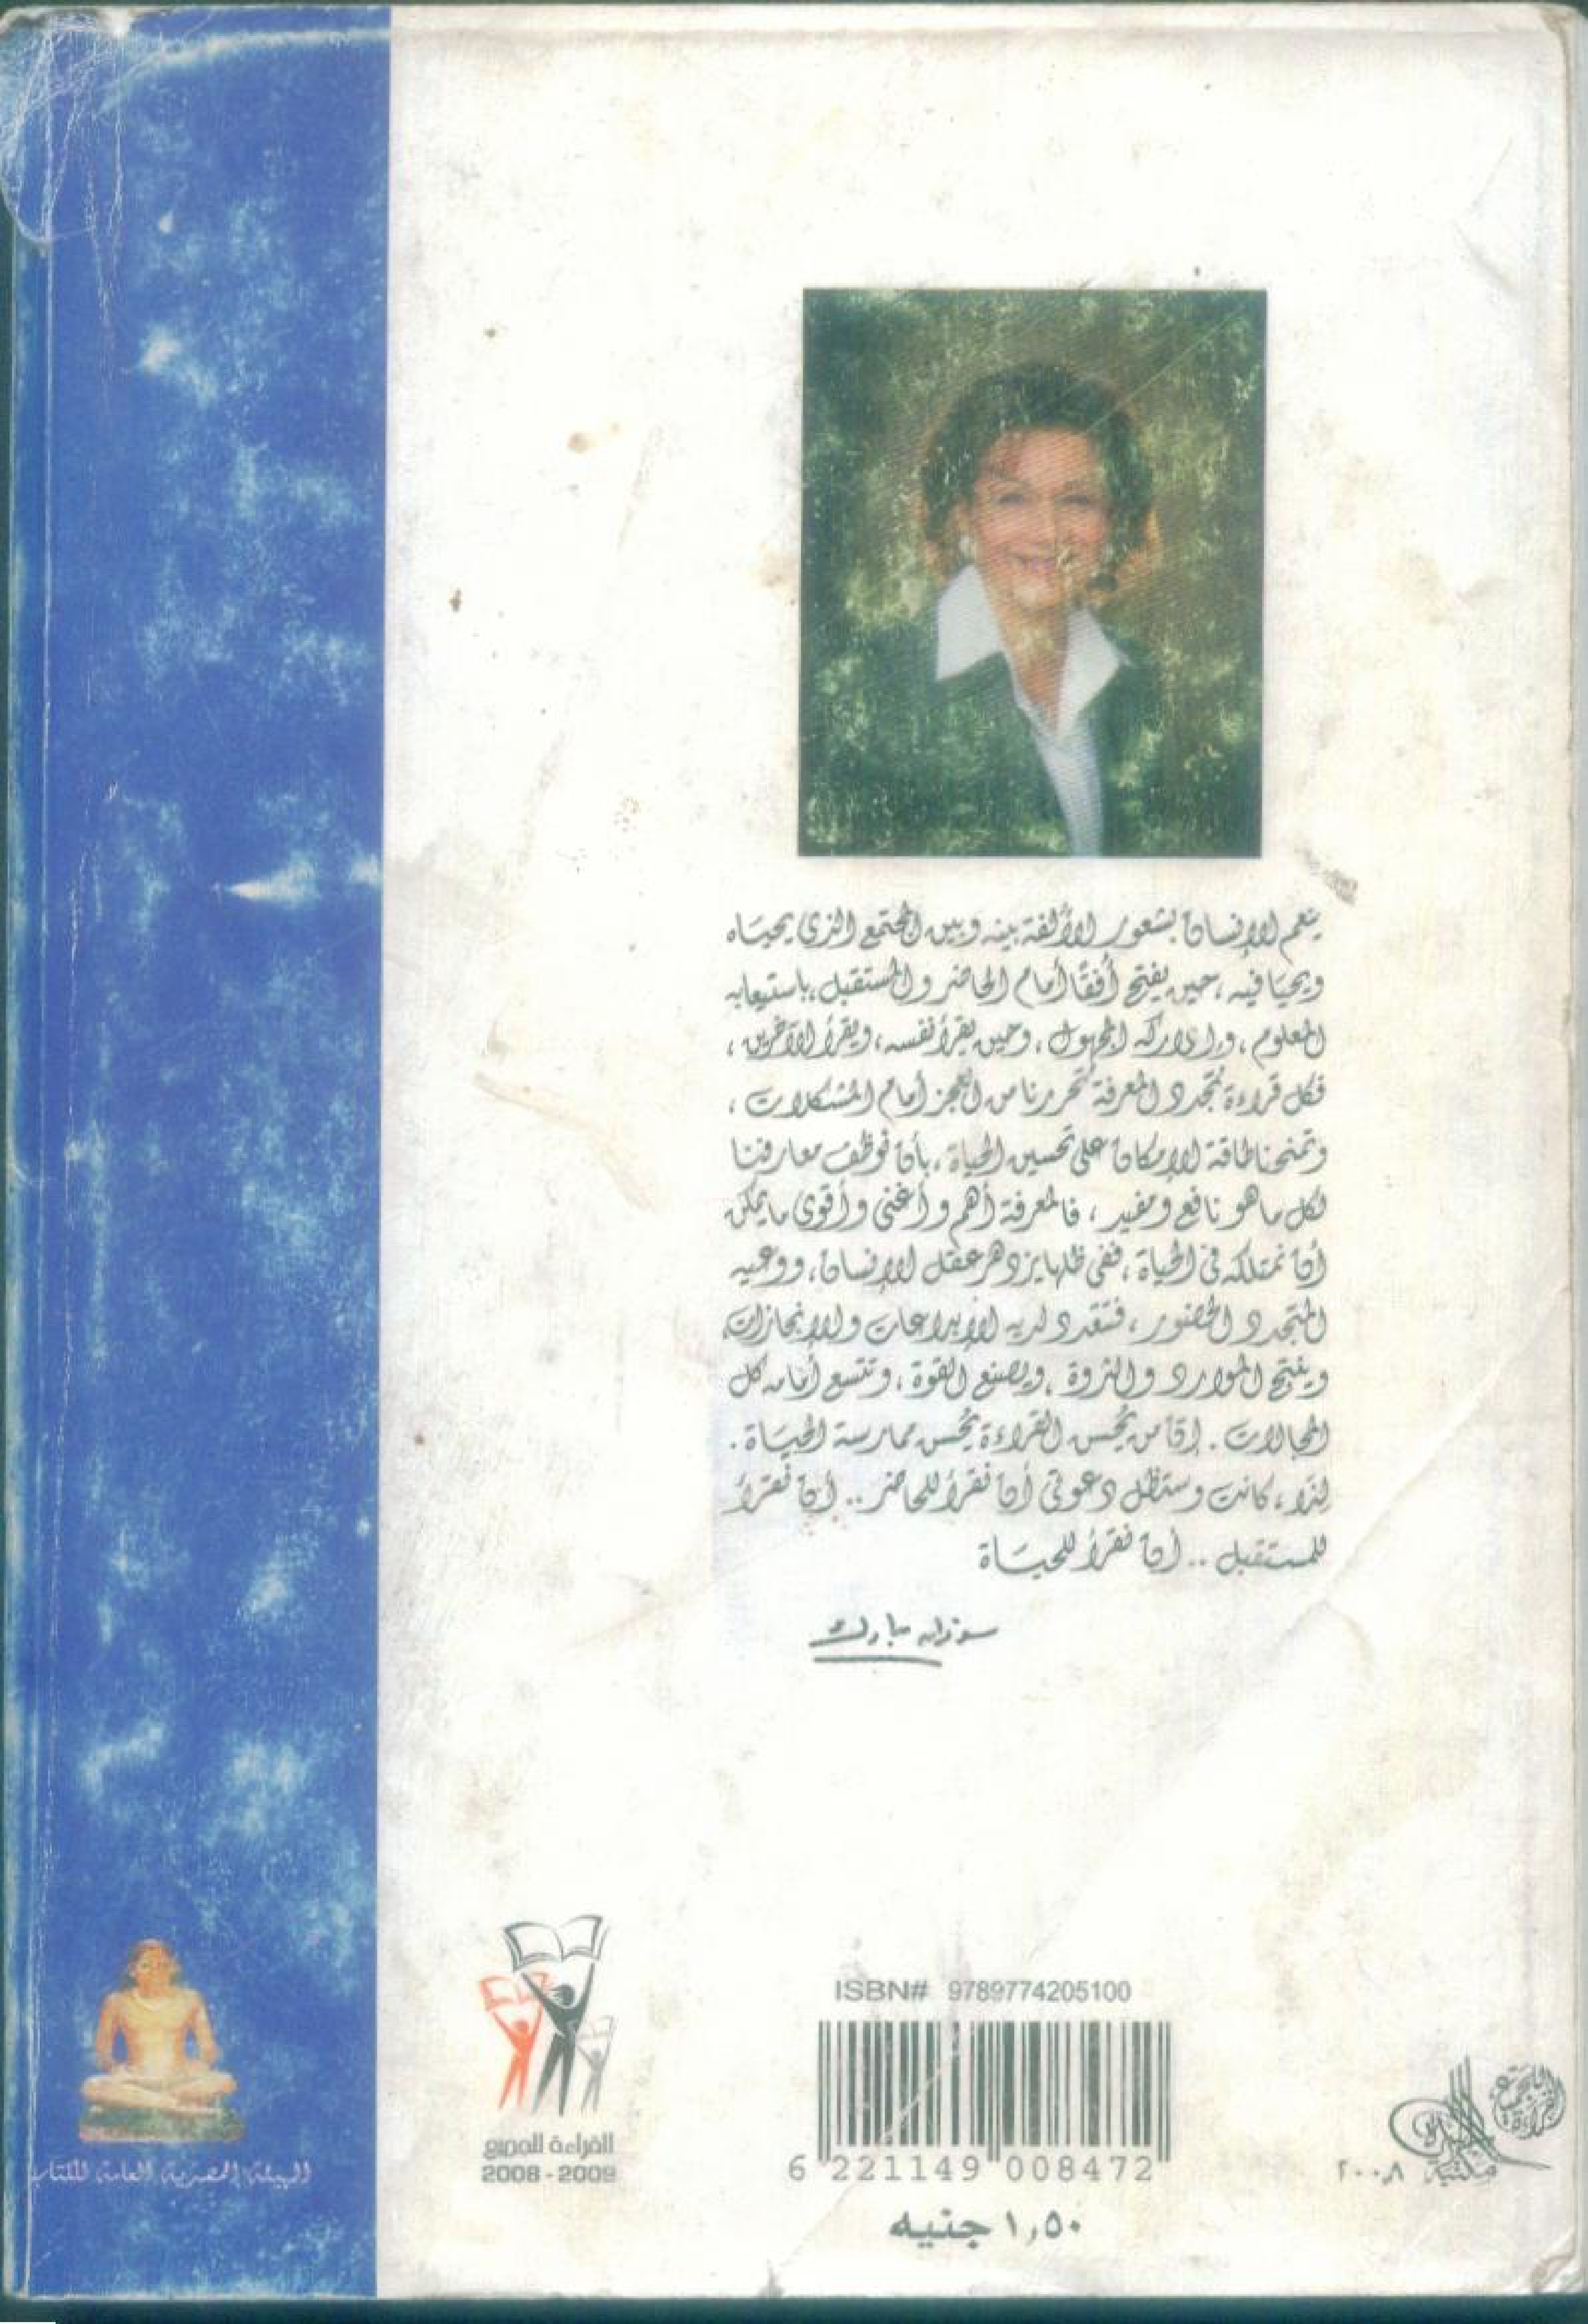 ينعم الإنسان بشعور الألفة بينه وبين المجتمع الذي يحياه
ويحيا فيه، حين يفتح أفقًا أمام الحاضر والمستقبل، باستيعابه
المعلوم، وإدراكه المجهول، وحين يقرأ نفسه، ويقرأ الآخرين،
فكل قراءة تجدد المعرفة تحررنا من العجز أمام المشكلات،
وتمنحنا طاقة الإمكان على تحسين الحياة، بأن نوظف معارفنا
لكل ما هو نافع ومفيد، فالمعرفة أهم وأغنى وأقوى ما يمكن
أن نمتلكه في الحياة، ففي ظلها يزدهر عقل الإنسان، ووعيه
المتجدد الحضور، فتتعدد لديه الإبداعات والإنجازات،
وينتج الموارد والثروة، ويصنع القوة، وتتسع أمامه كل
المجالات. إن من يُحسن القراءة يُحسن ممارسة الحياة.
لذا، كانت وستظل دعوتي أن نقرأ للحاضر.. أن نقرأ
للمستقبل.. أن نقرأ للحياة
سوزان مبارك
ISBN# 9789774205100
6 221149 008472
١,٥٠ جنيه
القراءة للجميع
2008 - 2009
الهيئة المصرية العامة للكتاب
مكتبة الأسرة
٢٠٠٨
القراءة للجميع